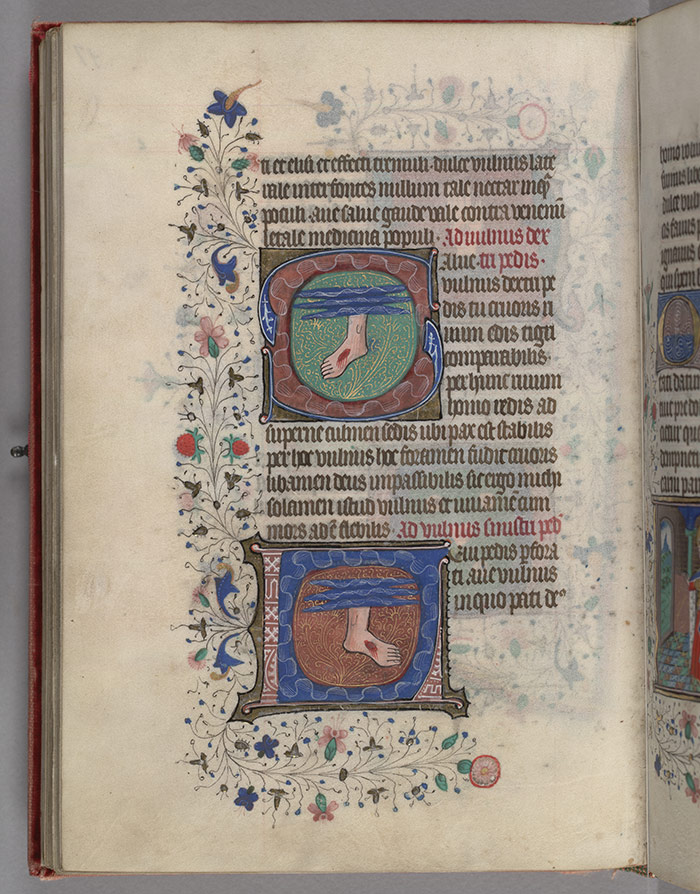 ti et elisi et effecti tremuli · dulce vulnus late
rale inter fontes nullum tale nectar
poculi · aue salue gaude vale contra venenū
letale medicina populi · Ad vulnus dex
Salue tri pedis ·
vulnus dextri pe
dis tu cruoris ri
uum edis tigri
comparabilis ·
per hunc riuum
homo redis ad
superne culmen sedis ubi pax est stabilis
per hoc vulnus hoc foramen fudit cruoris
libamen deus impassibilis sic ergo michi
solamen istud vulnus et iuuamen cum
mors ade flebilis · Ad vulnus sinistri ped
pedis ꝑfora
ti aue vulnus
in quo pati de